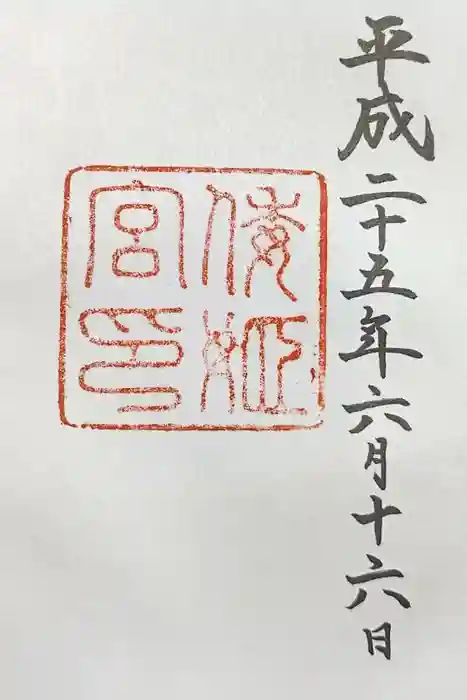 平成二十五年六月十六日
倭姫
宮印